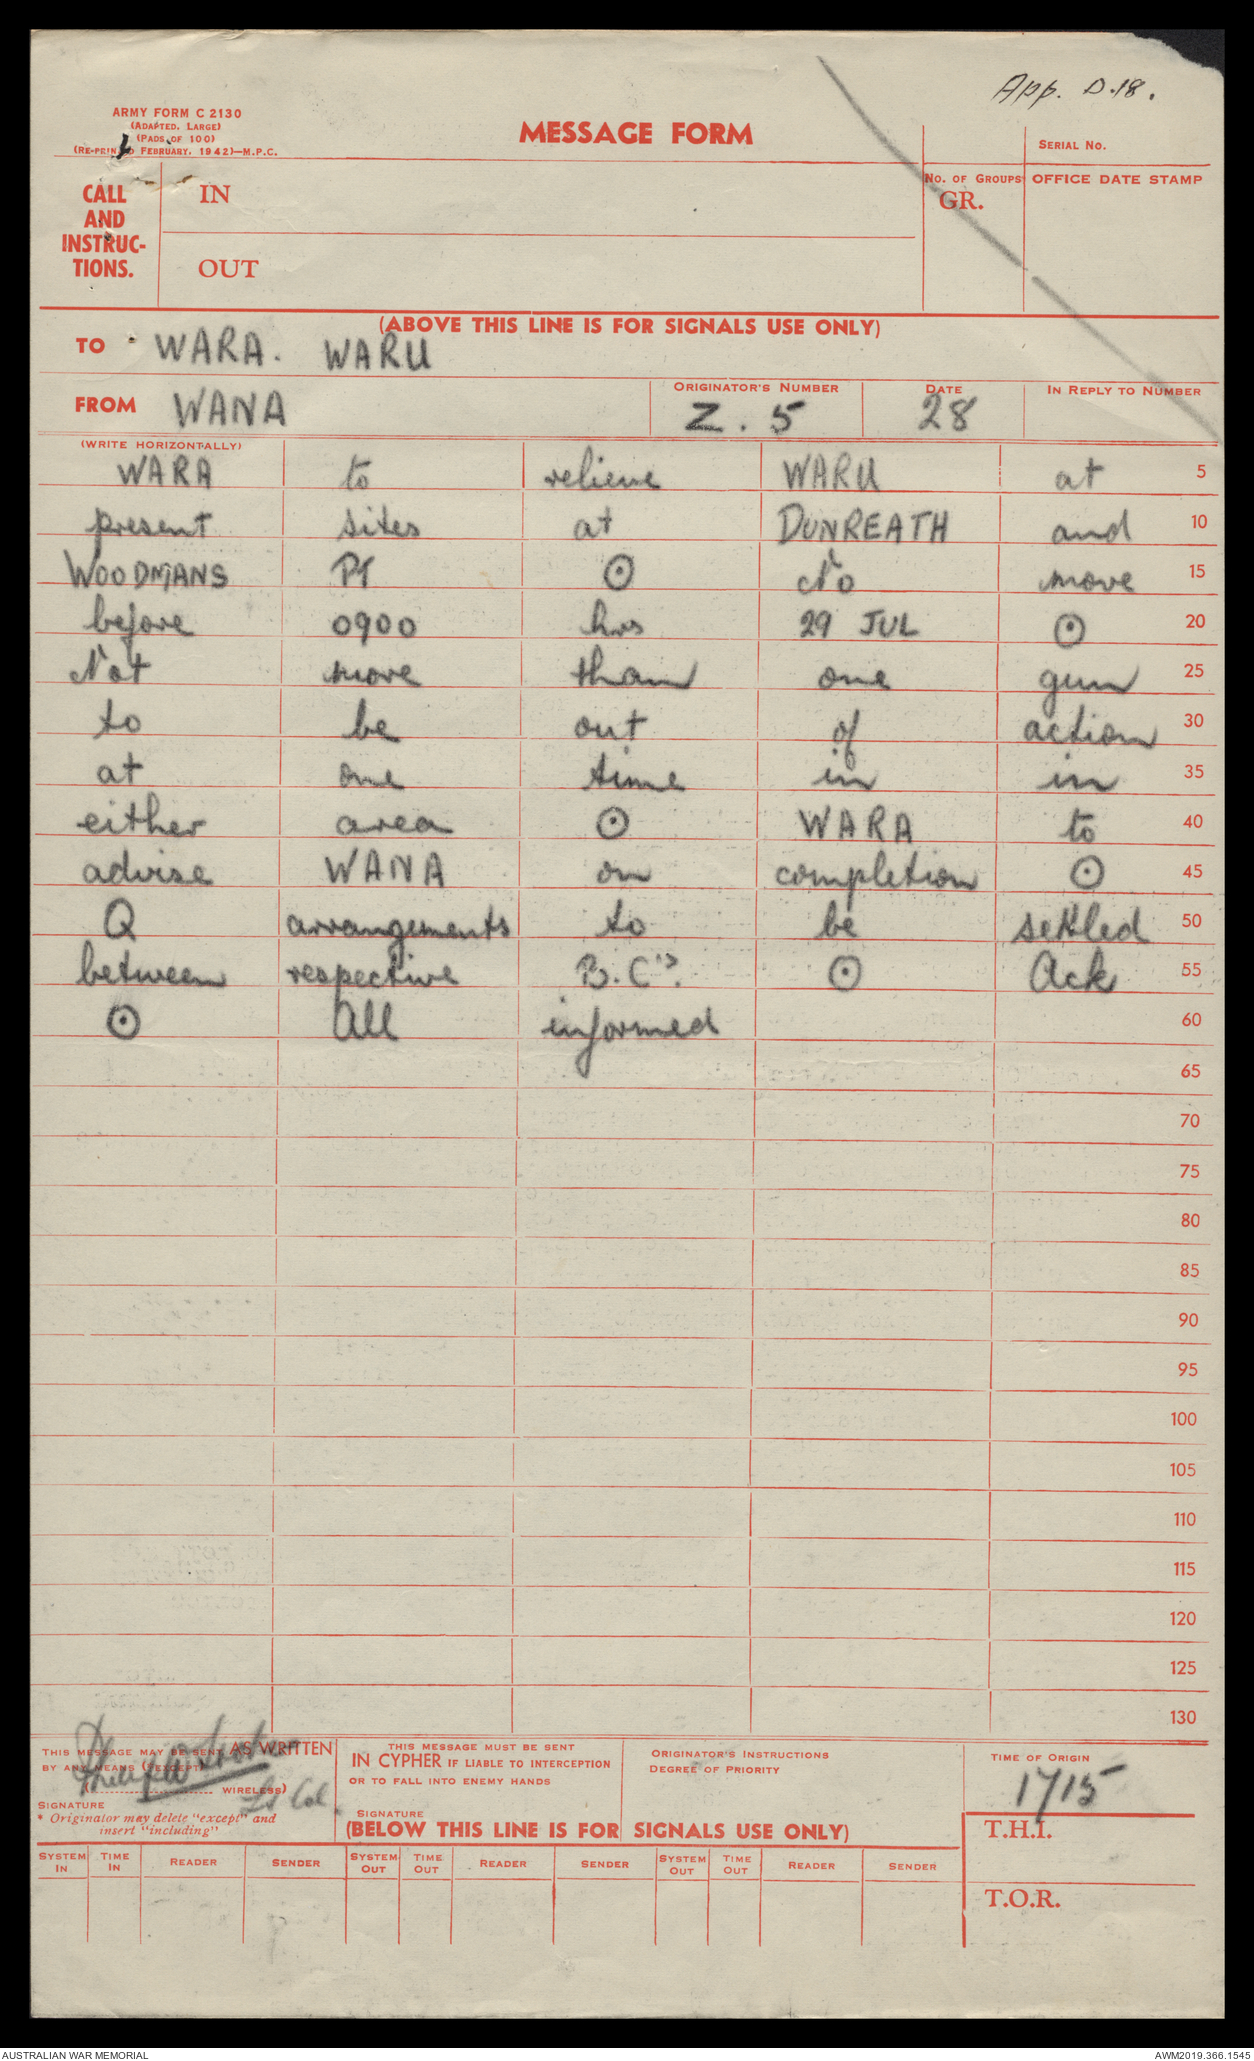 App. D.18.
ARMY FORM C 2130
(ADAPTED. LARGE)
(PADS OF 100)
FEBRUARY, 1942)—M.P.C.
MESSAGE FORM
SERIAL No.
CALL
AND
INSTRUC-
TIONS.
IN
OUT
No. OF GROUPS
GR.
OFFICE DATE STAMP
(ABOVE THIS LINE IS FOR SIGNALS USE ONLY)
TO WARA. WARU
FROM WANA
ORIGINATOR'S NUMBER
Z. 5
DATE
28
IN REPLY TO NUMBER
(WRITE HORIZONTALLY)
WARA to relieve WARU at 5
present sites at DUNREATH and 10
WOODMANS PT ⊙ No move 15
before 0900 hrs 29 JUL ⊙ 20
Not more than one gun 25
to be out of action 30
at one time in in 35
either area ⊙ WARA to 40
advise WANA on completion ⊙ 45
Q arrangements to be settled 50
between respective B.C's. ⊙ Ack 55
⊙ All informed 60
65
70
75
80
85
90
95
100
105
110
115
120
125
130
THIS MESSAGE MAY BE SENT AS WRITTEN
BY ANY MEANS (EXCEPT)
WIRELESS)
Lt Col.
SIGNATURE
* Originator may delete "except" and
insert "including"
THIS MESSAGE MUST BE SENT
IN CYPHER IF LIABLE TO INTERCEPTION
OR TO FALL INTO ENEMY HANDS
SIGNATURE
ORIGINATOR'S INSTRUCTIONS
DEGREE OF PRIORITY
TIME OF ORIGIN
1715
(BELOW THIS LINE IS FOR SIGNALS USE ONLY)
T.H.I.
SYSTEM IN TIME IN READER SENDER SYSTEM OUT TIME OUT READER SENDER SYSTEM OUT TIME OUT READER SENDER
T.O.R.
AUSTRALIAN WAR MEMORIAL
AWM2019.366.1545